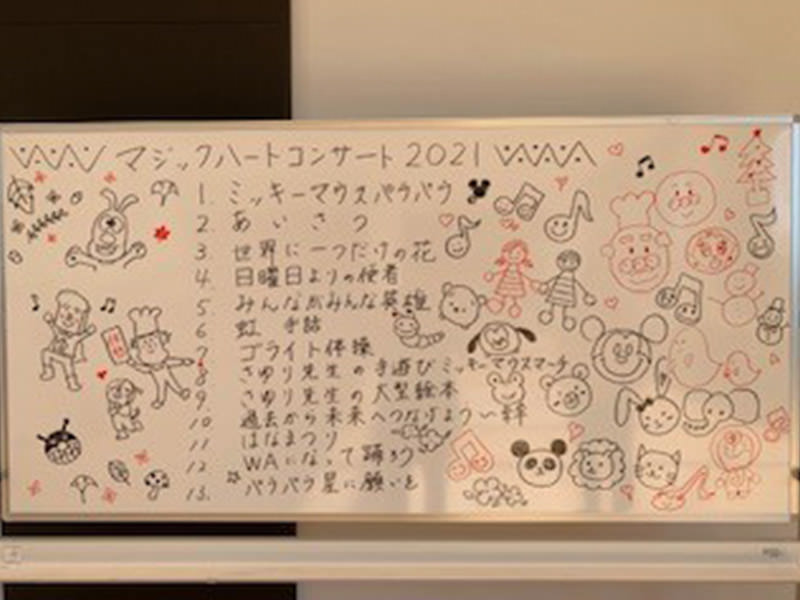 マジックハートコンサート2021
1 ミッキーマウスパラパラ
2. あいさつ
3. 世界に一つだけの花
4. 日曜日よりの使者
5 みんながみんな英雄
6 虹 手話
7 ゴライト体操
8 さゆり先生の手遊び ミッキーマウスマーチ
9. さゆり先生の大型絵本
10 過去から未来へつなげよう〜絆
11 はなまつり
12 WAになって踊ろう
13. パラパラ星に願いを